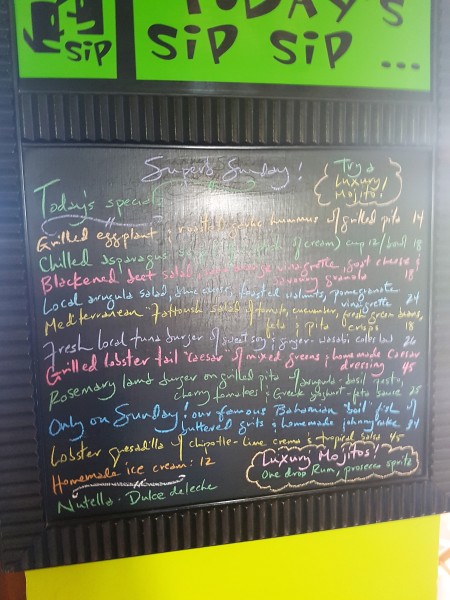 SiP
TODAY'S
SiP SiP ...
Superb Sunday!
Try a
Luxury
Mojito!
Today's specials
Grilled eggplant & roasted garlic hummus w/ grilled pita 14
Chilled asparagus cream) cup 12/bowl 18
Blackened beet salad, vinaigrette, goat cheese &
savoury granola 18
Local arugula salad, toasted walnuts, pomegranate
vinaigrette 24
Mediterranean Fattoush salad w/ tomato, cucumber, fresh green beans,
feta & pita crisps 18
Fresh local tuna burger w/ sweet soy & ginger-wasabi 26
Grilled lobster tail "Caesar" w/ mixed greens & homemade Caesar
dressing 45
Rosemary lamb burger on grilled pita w/ basil pesto,
cherry tomatoes & Greek yoghurt-feta sauce 25
Only on Sunday! our famous Bahamian boil fish w/
buttered grits & homemade johnnycake 24
Lobster quesadilla w/ chipotle-lime crema & tropical salsa 45
Homemade ice cream: 12
Nutella · Dulce de leche
Luxury Mojitos!
One drop Rum, prosecco spritz